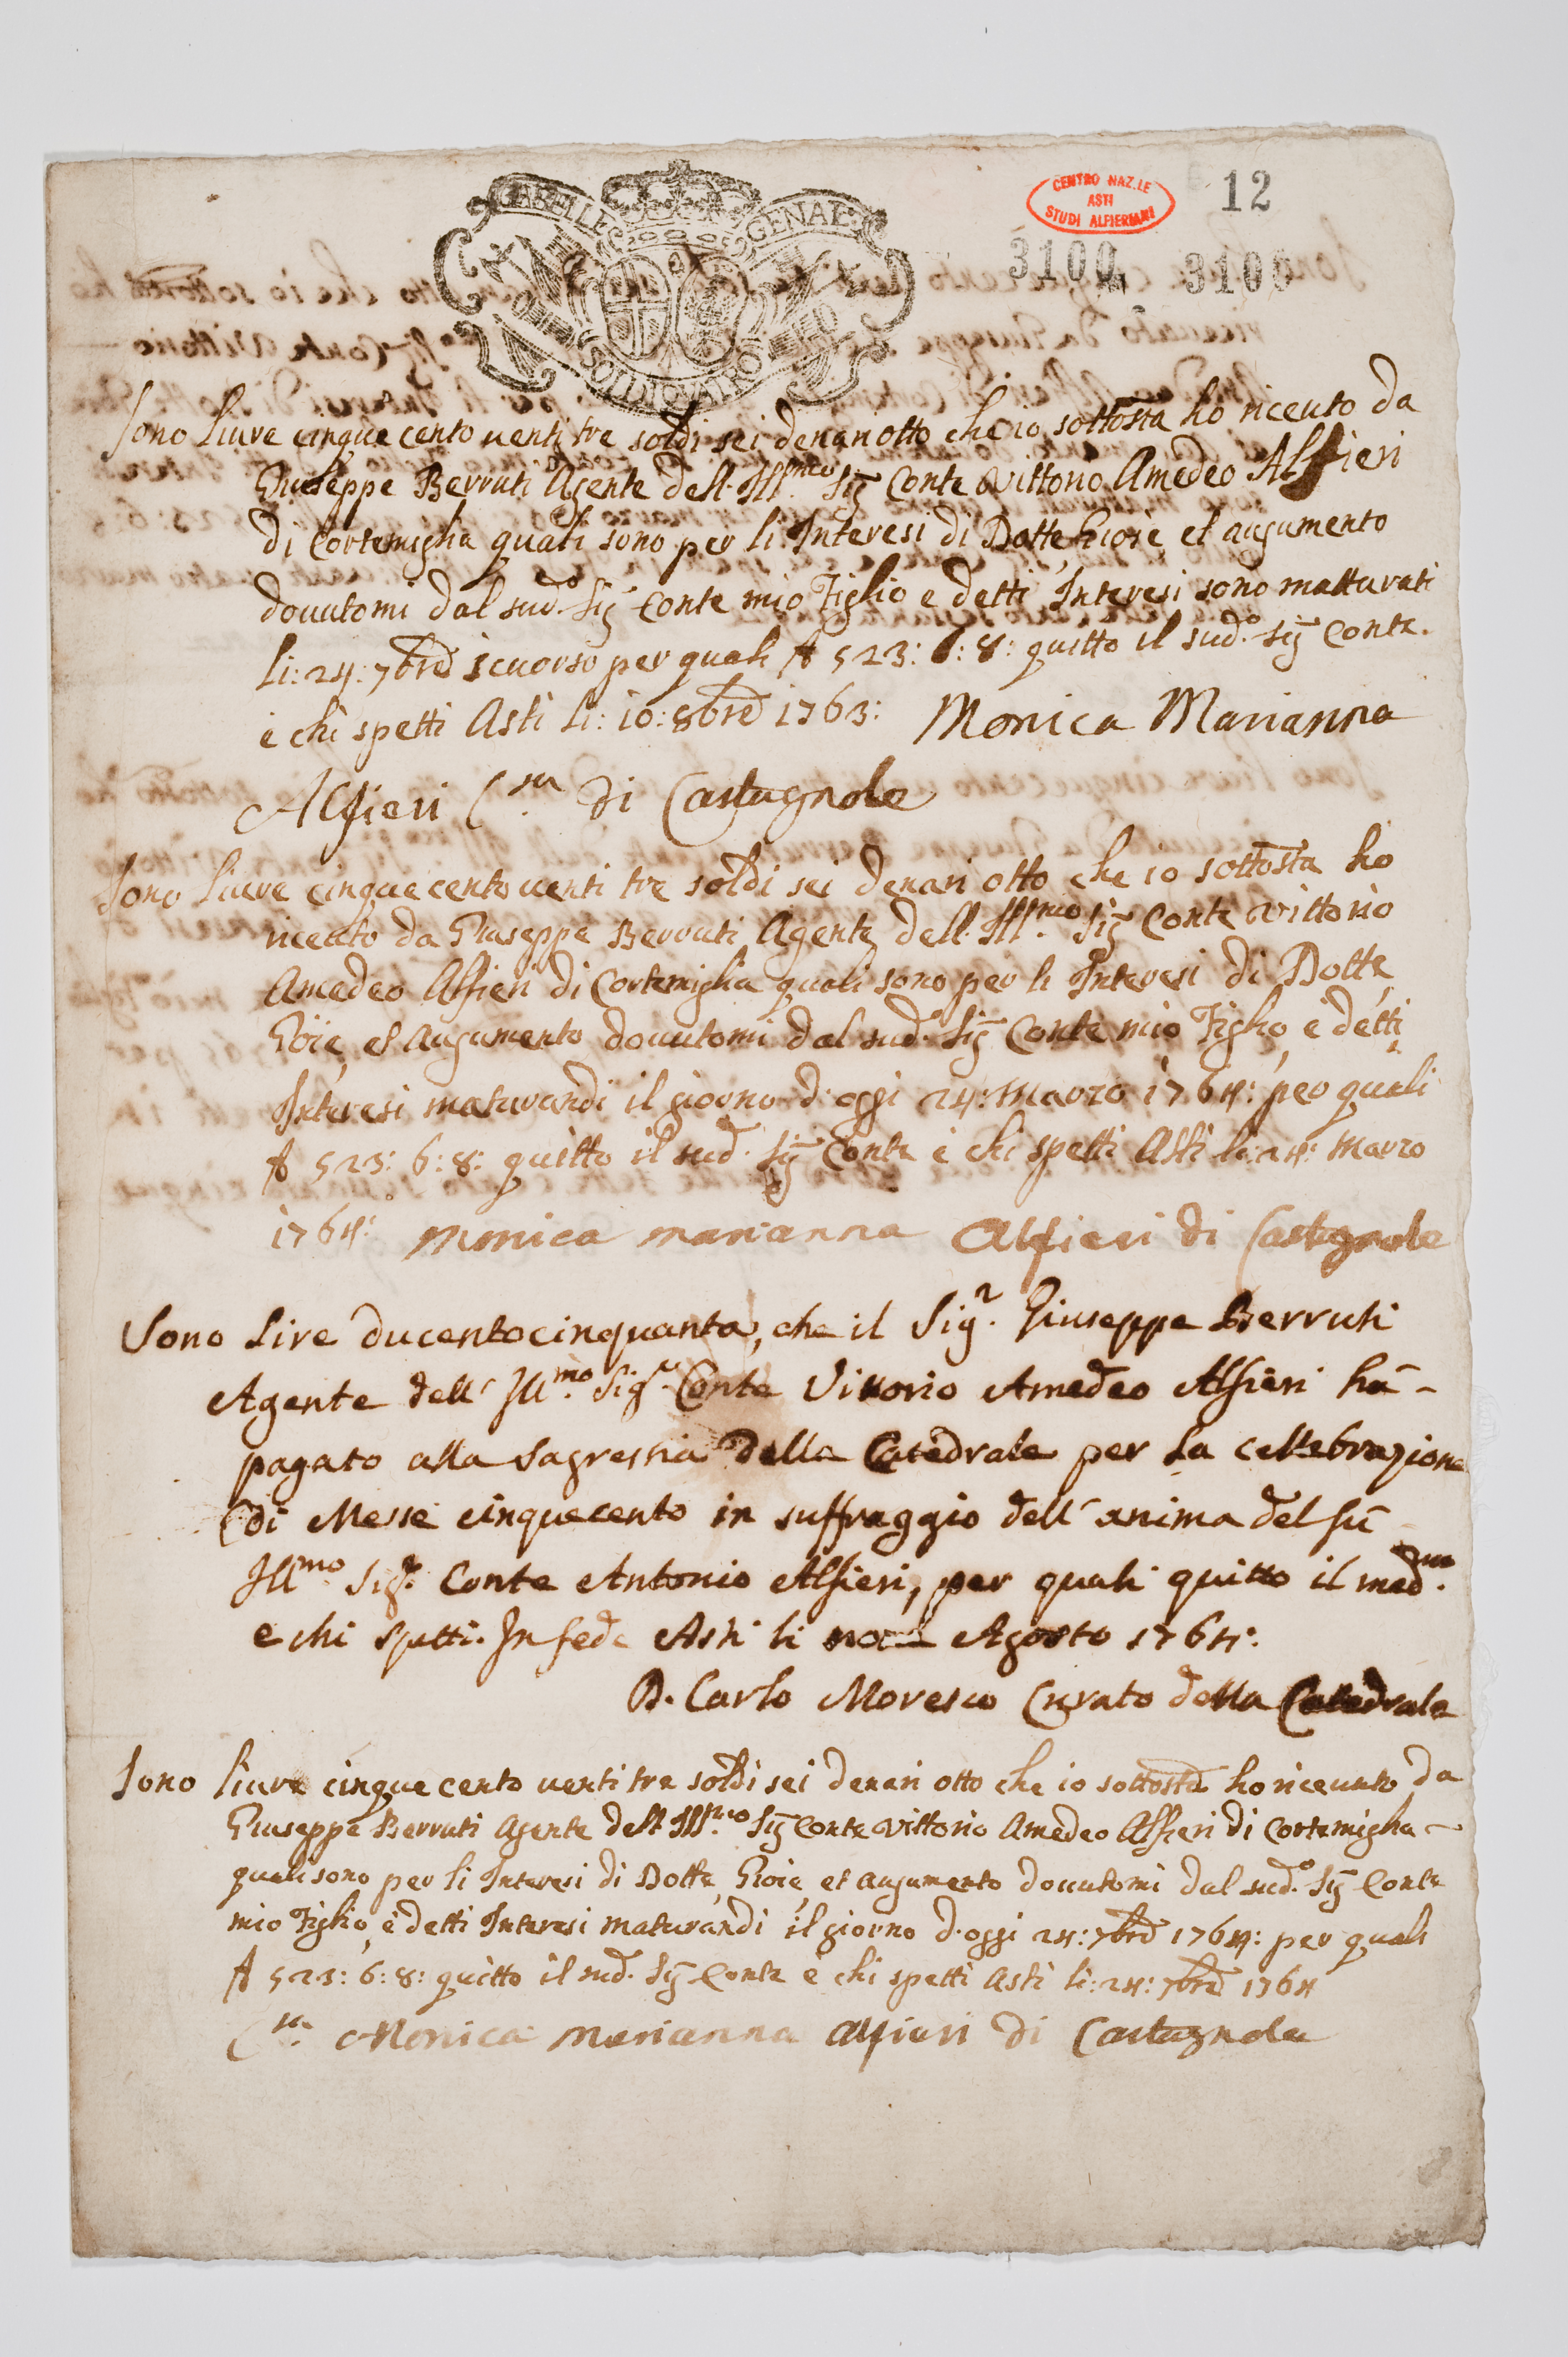 GABELLE GENAL:
SOLDI QVATRO
CENTRO NAZ.LE
ASTI
STUDI ALFIERIANI
12
3100 3100
Sono Liure cinque cento uenti tre soldi sei denari otto che io sottosta ho riceuto da
Giuseppe Berruti Agente dell. Ill.mo Sig Conte Vittorio Amedeo Alfieri
di Cortemiglia quali sono per li Interesi di Dotte, Gioie, et augumento
douutomi dal sud.o Sig Conte mio Figlio e detti Interesi sono matturati
li: 24: 7bre scuorso per quali £ 523: 6: 8: quitto il sud.o Sig Conte.
è chi spetti Asti li: 10: 8bre 1763: Monica Marianna
Alfieri C.sa di Castagnole
Sono Liure cinque cento uenti tre soldi sei denari otto che io sottosta ho
riceuto da Giuseppe Berruti Agente dell. Ill.mo Sig Conte Vittorio
Amedeo Alfieri di Cortemiglia quali sono per li Interesi di Dotte
Gioie, et Augumento douutomi dal sud.o Sig Conte mio Figlio, è detti
Interesi maturandi il giorno d'oggi 24: Marzo 1764: per quali
£ 523: 6: 8: quitto il sud.o Sig Conte è chi spetti Asti li: 24: Marzo
1764: Monica marianna Alfieri di Castagnole
Sono Lire ducentocinquanta, che il Sig.r Giuseppe Berruti
Agente dell' Ill.mo Sig.r Conte Vittorio Amedeo Alfieri hà -
pagato alla Sagrestia della Catedrale per la cellebrazione
di Messe cinquecento in suffraggio dell' anima del fù
Ill.mo Sig.r Conte Antonio Alfieri, per quali quitto il med.mo
e chi spetti. In fede Asti li Agosto 1764:
D. Carlo Moresco Curato della Catedrale
Sono liure cinque cento uenti tre soldi sei denari otto che io sottosta ho riceuuto da
Giuseppe Berruti Agente dell Ill.mo Sig Conte Vittorio Amedeo Alfieri di Cortemiglia -
quali sono per li Interesi di Dotte, Gioie, et augumento douutomi dal sud.o Sig Conte
mio Figlio, è detti Interesi maturandi il giorno d'oggi 24: 7bre 1764: per quali
£ 523: 6: 8: quitto il sud.o Sig Conte è chi spetti Asti li: 24: 7bre 1764
C.sa Monica Marianna Alfieri di Castagnole